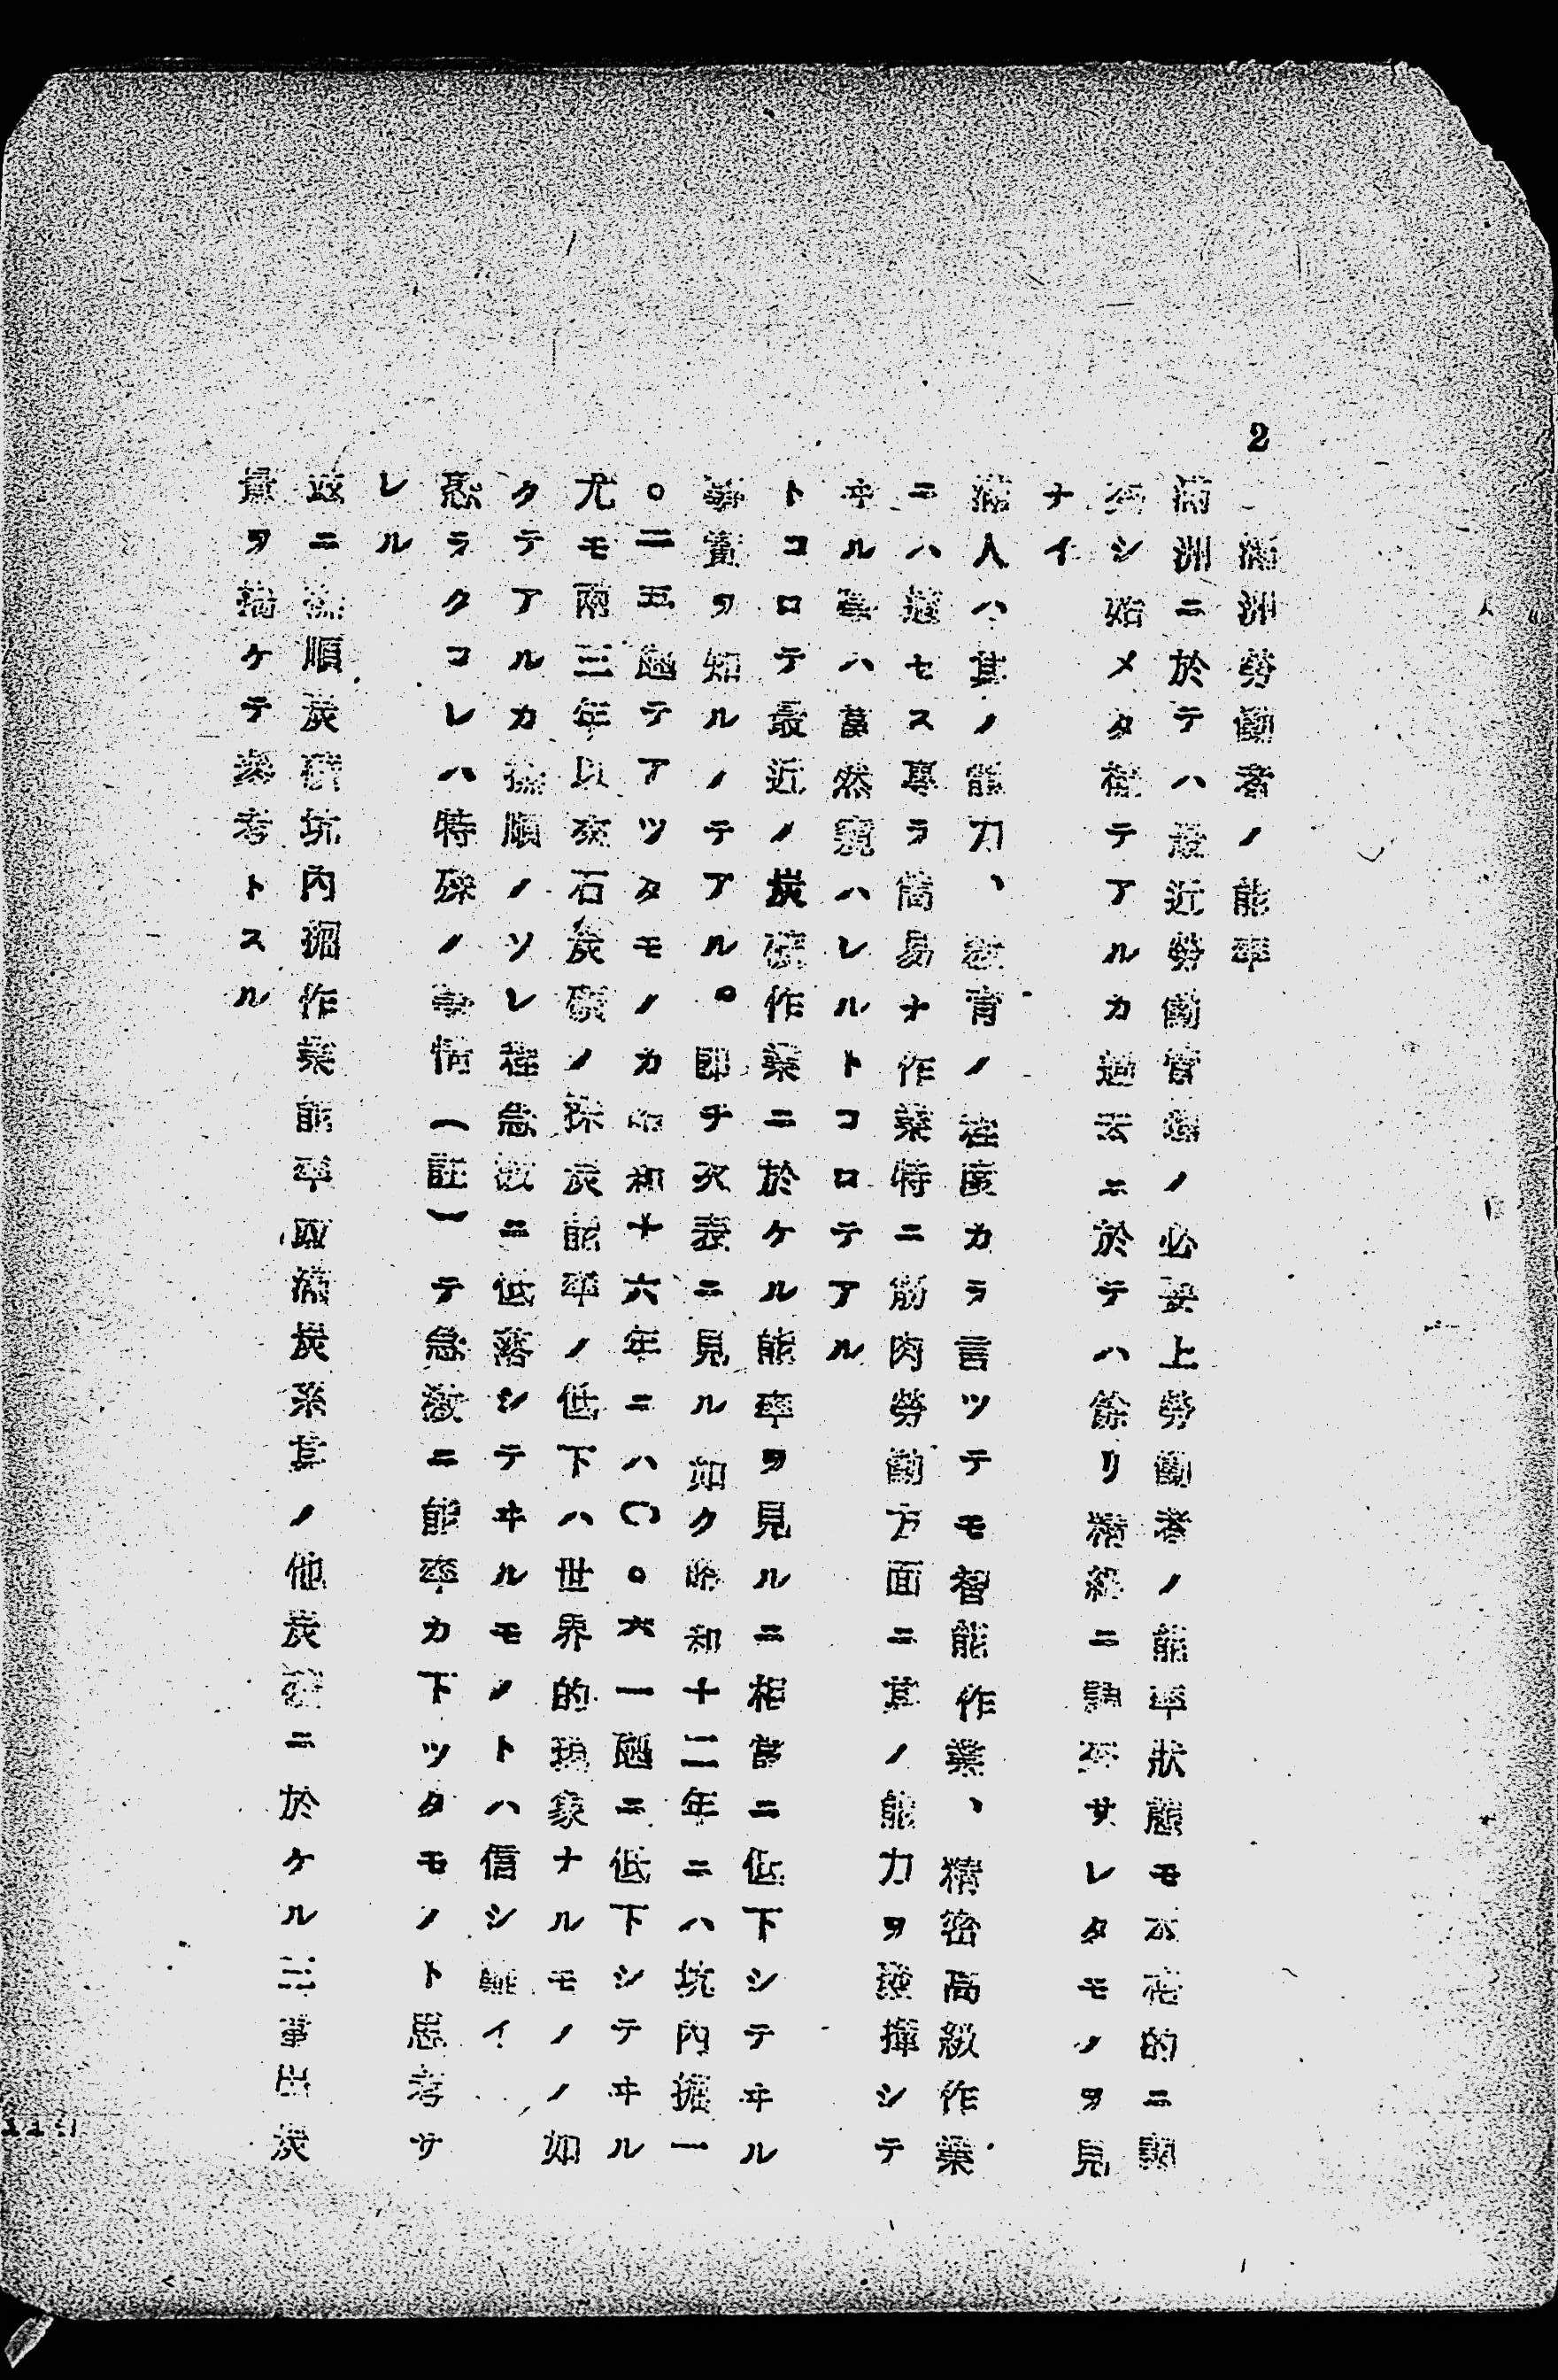 2
滿洲勞働者ノ能率
滿洲ニ於テハ最近勞働管理ノ必要上勞働者ノ能率狀態モ本格的ニ調
究シ始メタ樣テアルカ過去ニ於テハ餘リ精細ニ調査サレタモノヲ見
ナイ
滿人ハ其ノ能力、敎育ノ程度カラ言ツテモ智能作業、精密高級作業
ニハ適セス專ラ簡易ナ作業特ニ筋肉勞働方面ニ其ノ能力ヲ發揮シテ
ヰル事ハ當然窺ハレルトコロテアル
トコロテ最近ノ炭礦作業ニ於ケル能率ヲ見ルニ相當ニ低下シテヰル
事實ヲ知ルノテアル。卽チ次表ニ見ル如ク昭和十二年ニハ坑內掘一
。二五瓲テアツタモノカ昭和十六年ニハ〇。六一瓲ニ低下シテヰル
尤モ兩三年以來石炭礦ノ採炭能率ノ低下ハ世界的現象ナルモノノ如
クテアルカ撫順ノソレ程急激ニ低落シテヰルモノトハ信シ難イ
恐ラクコレハ特殊ノ事情(註)テ急激ニ能率カ下ツタモノト思考サ
レル
茲ニ撫順炭礦坑內掘作業能率及滿炭系其ノ他炭礦ニ於ケル三事出炭
量ヲ揭ケテ參考トスル